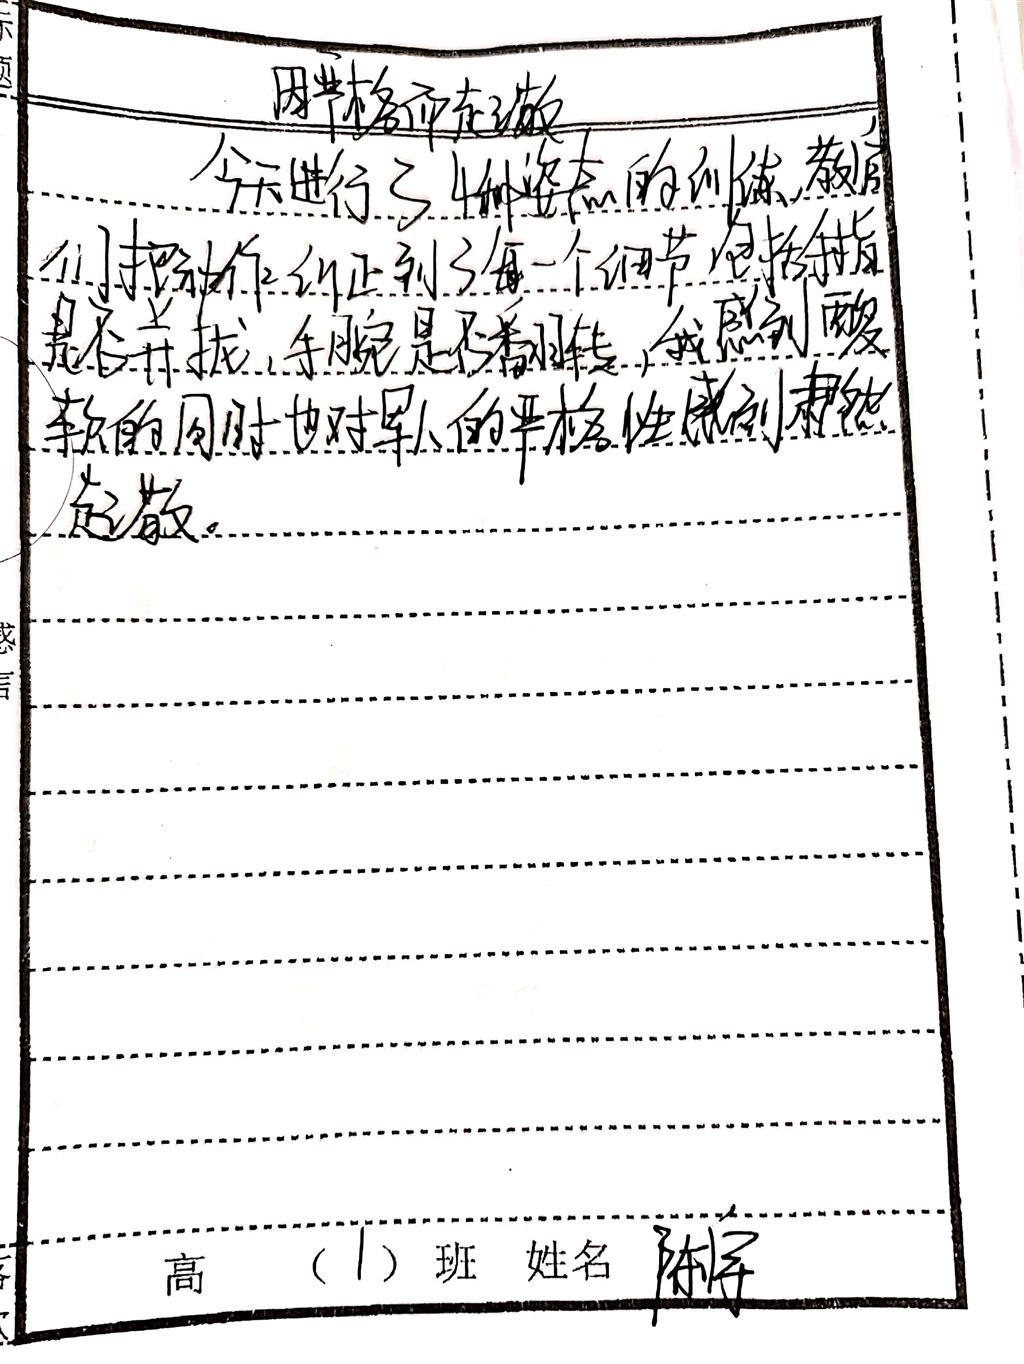 标题
因严格而起敬
今天进行了4种姿态的训练,教官
们把动作纠正到了每一个细节,包括手指
是否并拢,手腕是否翻转,我感到酸
软的同时也对军人的严格性感到肃然
起敬。
感言
落款
高 (1)班 姓名 陈